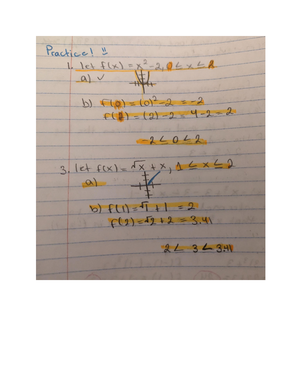 Practice 1
1. let f(x) = x² - 2, 0 ≤ x ≤ 2
a) ✓
b) f(0) = (0)² - 2 = -2
f(2) = (2) - 2 = 4 - 2 = 2
-2 < 0 < 2
3. let f(x) = √x + x, 1 ≤ x ≤ 2
a)
b) f(1) = √1 + 1 = 2
f(2) = √2 + 2 = 3.41
2 < 3 < 3.41